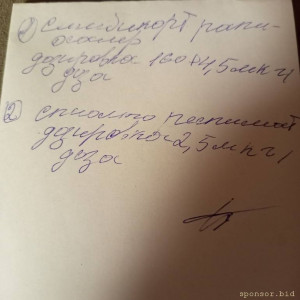 1) симбикорт рапи-
халер
дозировка 160+4,5мкг/
доза
2) спиолто респимат
дозировка 2,5мкг/
доза
sponsor.bid